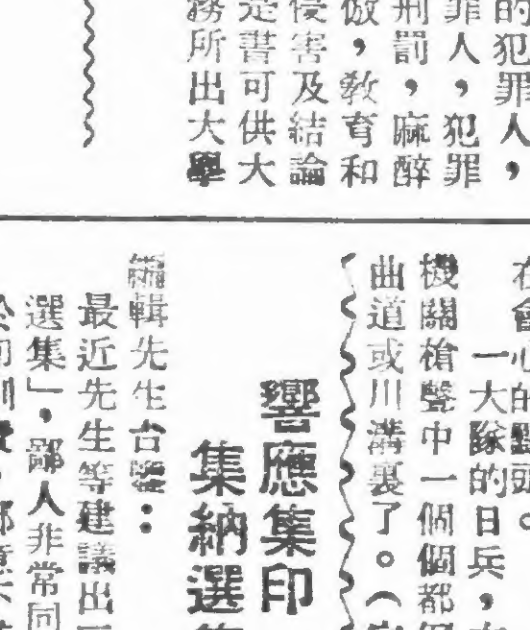 的犯罪人，
罪人，犯罪
刑罰，麻醉
倣，敎育和
侵害及結論
是書可供大
務所出大學
在會心的點頭。
一大隊的日兵，
機關槍聲中一個個都
曲道或川溝裏了。（
響應集印
集納選
編輯先生台鑒：
最近先生等建議出
選集」，鄙人非常同